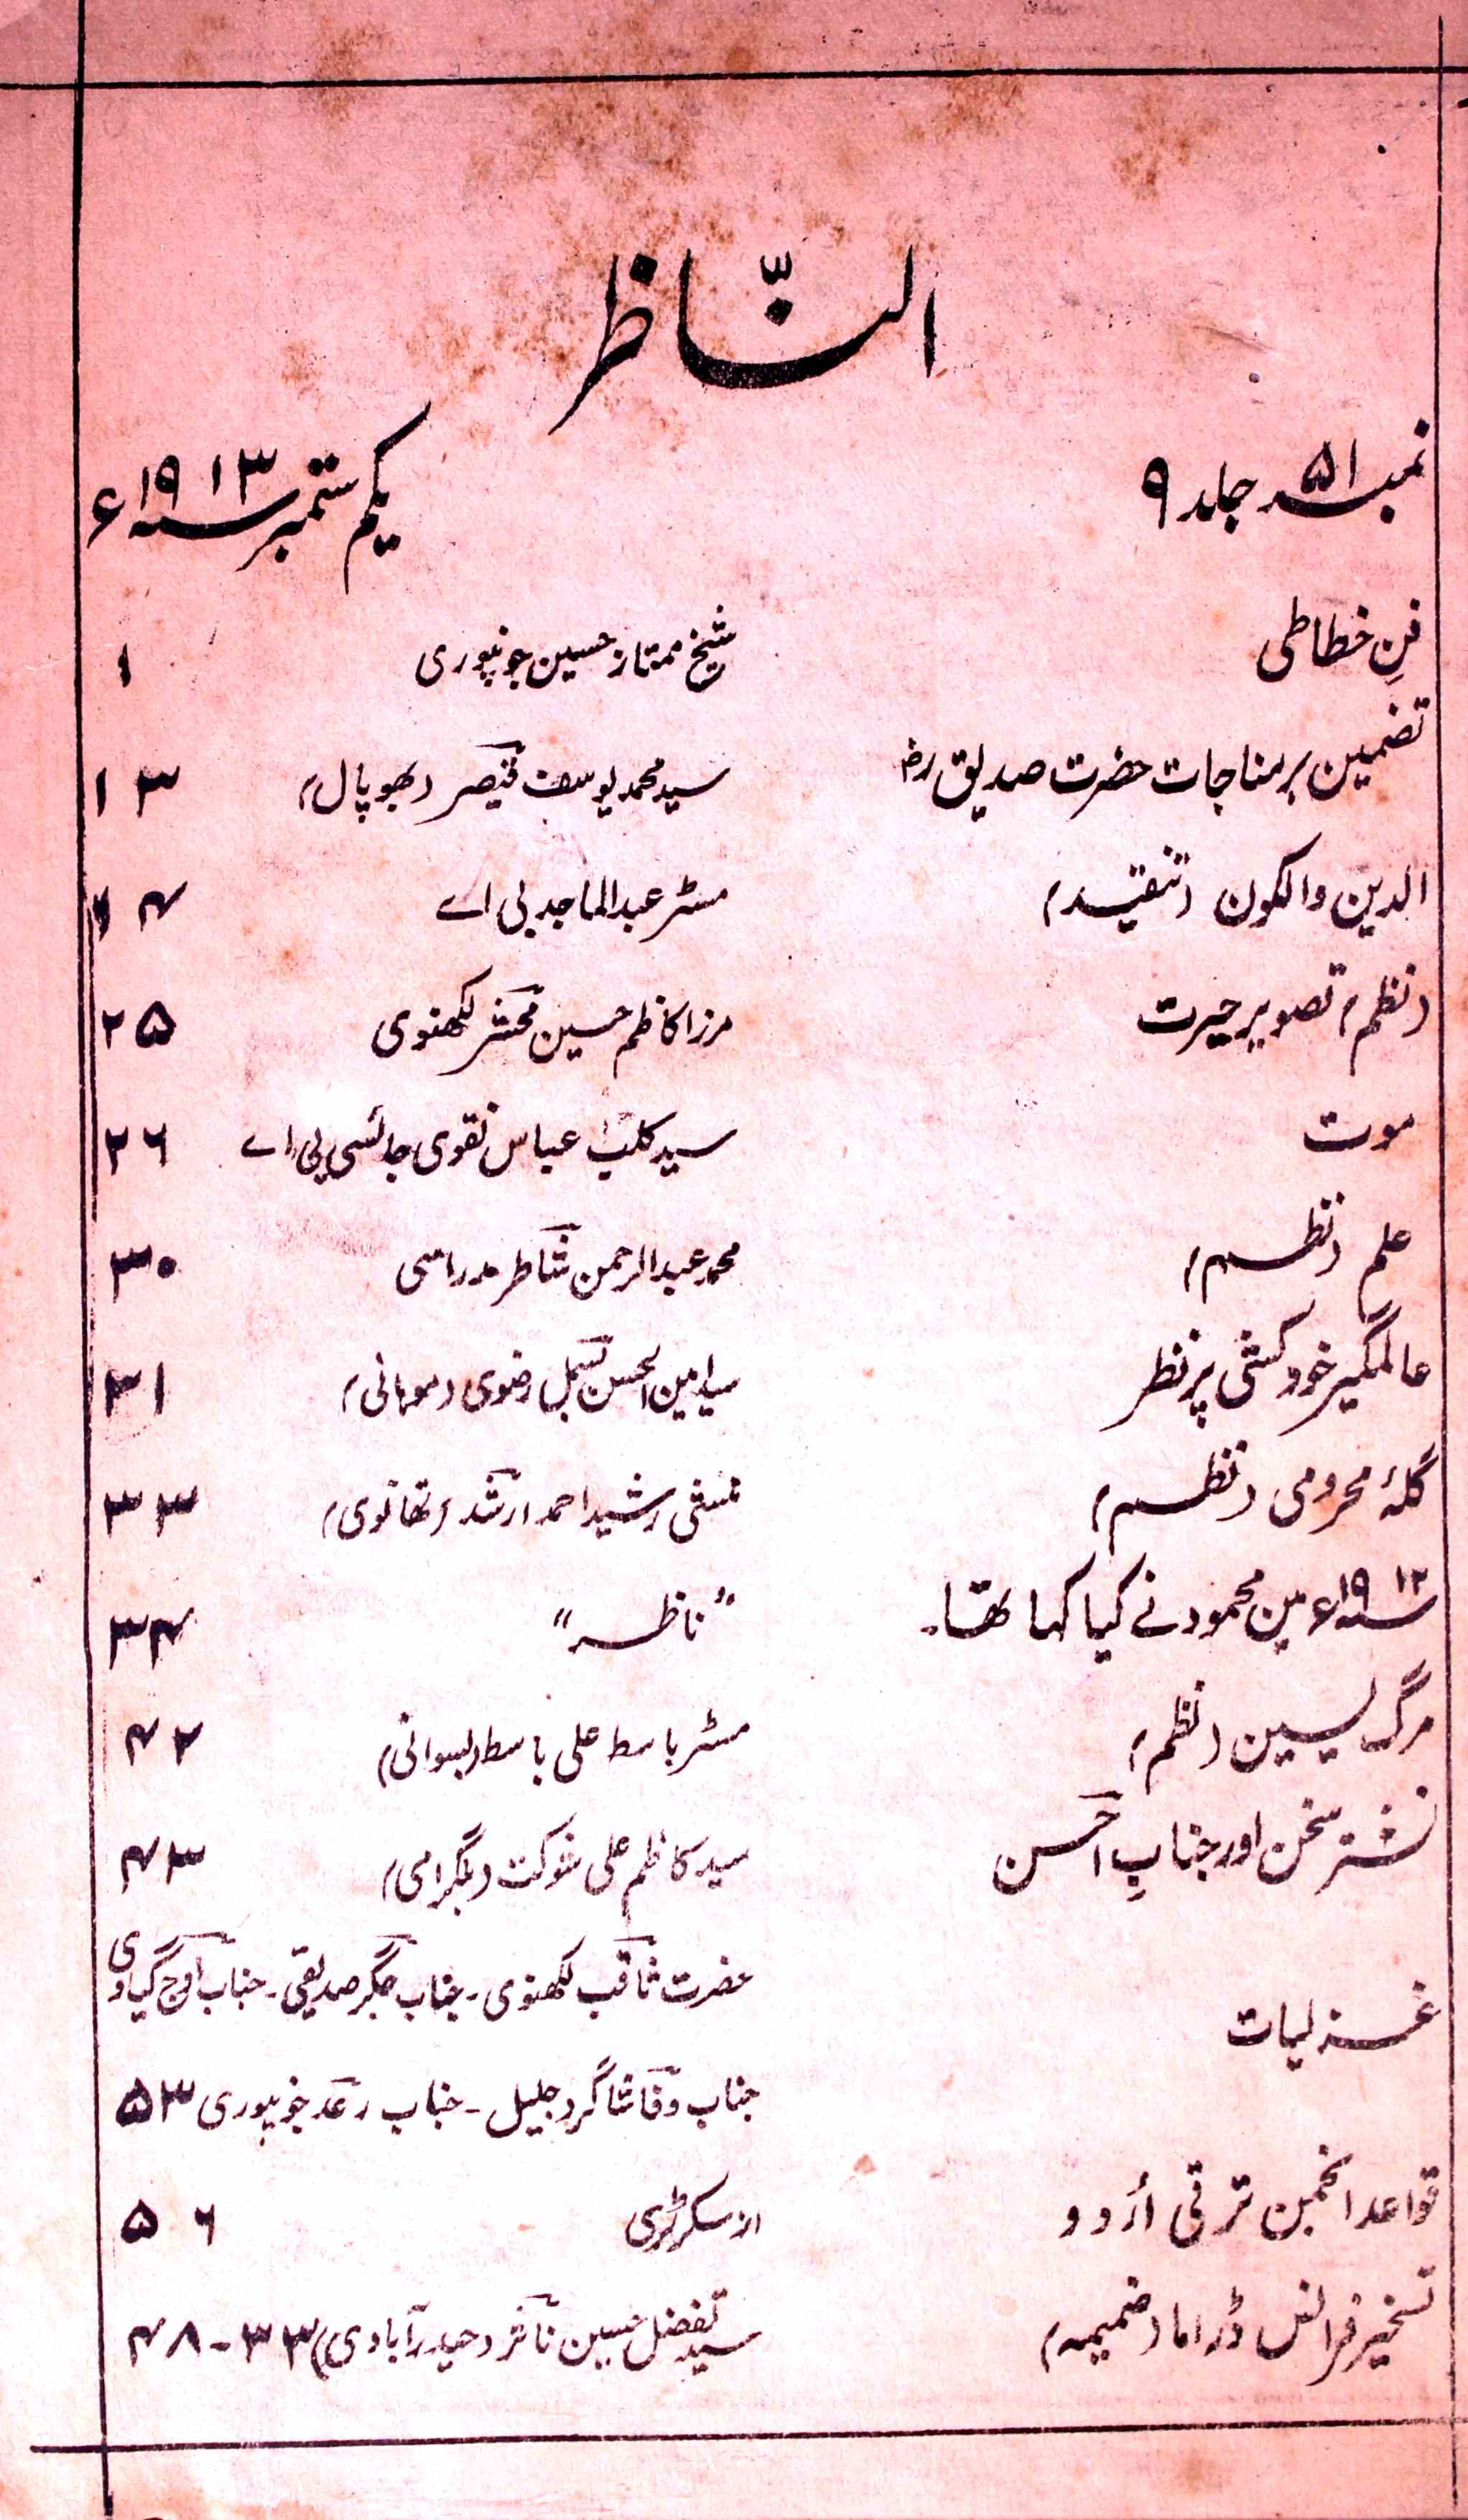 النّاظر
نمبر ۵۱ جلد ۹ یکم ستمبر سنہ ۱۹۱۳ء
فنِ خطاطی شیخ ممتاز حسین جونپوری ۱
تضمین بر مناجات حضرت صدیق رضہ سید محمد یوسف قیصر (بھوپال) ۱۳
الدین والکون (تنقید) مسٹر عبدالماجد بی اے ۱۴
(نظم) تصویر حیرت مرزا کاظم حسین محشر لکھنوی ۲۵
موت سید کلب عباس نقوی جائسی بی اے ۲۶
علم (نظم) محمد عبدالرحمن شاطر مدراسی ۳۰
عالمگیر خودکشی پر نظر سید امین الحسن بسمل رضوی (موہانی) ۳۱
گلۂ محرومی (نظم) منشی رشید احمد ارشد (تھانوی) ۳۳
سنہ ۱۹۱۲ء مین محمود نے کیا کہا تھا۔ "ناظر" ۳۴
مرگ یسین (نظم) مسٹر باسط علی باسط (بسوانی) ۴۲
نشتر سخن اور جنابِ احسن سید کاظم علی شوکت (بلگرامی) ۴۳
غزلیات حضرت ثاقب لکھنوی۔ جناب جگر صدیقی۔ جناب اوج گیاوی
جناب وفا شاگرد جلیل۔ جناب رعد جونپوری ۵۳
قواعد انجمن ترقی اُردو از سکرٹری ۵۶
تسخیر فرانس ڈراما (ضمیمہ) سید تفضل حسین ناثر (حیدرآبادی) ۳۳-۴۸